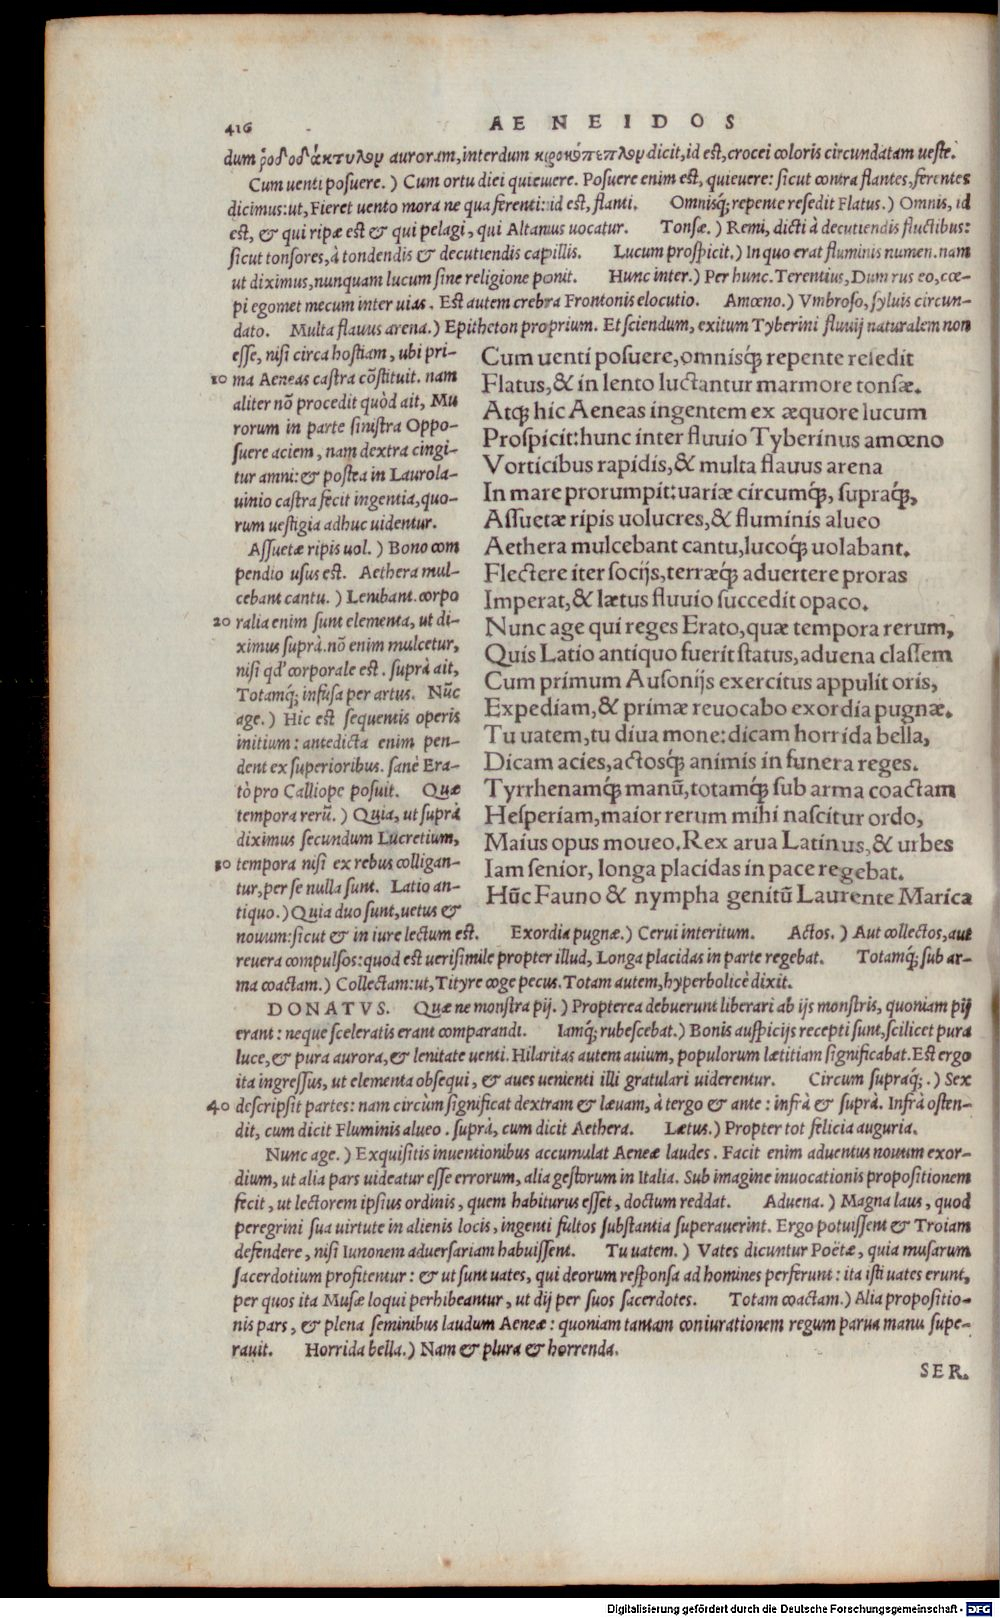 416
AENEIDOS
dum ῥοδοδάκτυλον auroram, interdum κροκόπεπλον dicit, id est, crocei coloris circundatam ueste.
Cum uenti posuere.) Cum ortu diei quieuere. Posuere enim est, quieuere: sicut contra flantes, ferentes
dicimus: ut, Fieret uento mora ne qua ferenti: id est, flanti. Omnisq́; repente resedit Flatus.) Omnis, id
est, & qui ripæ est & qui pelagi, qui Altanus uocatur. Tonsæ.) Remi, dicti à decutiendis fluctibus:
sicut tonsores, à tondendis & decutiendis capillis. Lucum prospicit.) In quo erat fluminis numen. nam
ut diximus, nunquam lucum sine religione ponit. Hunc inter.) Per hunc. Terentius, Dum rus eo, cœ-
pi egomet mecum inter uias. Est autem crebra Frontonis elocutio. Amœno.) Vmbroso, syluis circun-
dato. Multa flauus arena.) Epitheton proprium. Et sciendum, exitum Tyberini fluuij naturalem non
esse, nisi circa hostiam, ubi pri-
10 ma Aeneas castra cōstituit. nam
aliter nō procedit quòd ait, Mu
rorum in parte sinistra Oppo-
suere aciem, nam dextra cingi-
tur amni: & postea in Laurola-
uinio castra fecit ingentia, quo-
rum uestigia adhuc uidentur.
Assuetæ ripis uol.) Bono com
pendio usus est. Aethera mul-
cebant cantu.) Lenibant. corpo
20 ralia enim sunt elementa, ut di-
ximus suprà. nō enim mulcetur,
nisi qd' corporale est. suprà ait,
Totamq́; infusa per artus. Nūc
age.) Hic est sequentis operis
initium: antedicta enim pen-
dent ex superioribus. sanè Era-
tò pro Calliope posuit. Quæ
tempora rerū.) Quia, ut suprà
diximus secundum Lucretium,
30 tempora nisi ex rebus colligan-
tur, per se nulla sunt. Latio an-
tiquo.) Quia duo sunt, uetus &
Cum uenti posuere, omnisq́; repente resedit
Flatus, & in lento luctantur marmore tonsæ.
Atq; hic Aeneas ingentem ex æquore lucum
Prospicit: hunc inter fluuio Tyberinus amœno
Vorticibus rapidis, & multa flauus arena
In mare prorumpit: uariæ circumq́;, supraq́;,
Assuetæ ripis uolucres, & fluminis alueo
Aethera mulcebant cantu, lucoq́; uolabant.
Flectere iter socijs, terræq́; aduertere proras
Imperat, & lætus fluuio succedit opaco.
Nunc age qui reges Erato, quæ tempora rerum,
Quis Latio antiquo fuerit status, aduena classem
Cum primum Ausonijs exercitus appulit oris,
Expediam, & primæ reuocabo exordia pugnæ.
Tu uatem, tu diua mone: dicam horrida bella,
Dicam acies, actosq́; animis in funera reges.
Tyrrhenamq́; manū, totamq́; sub arma coactam
Hesperiam, maior rerum mihi nascitur ordo,
Maius opus moueo. Rex arua Latinus, & urbes
Iam senior, longa placidas in pace regebat.
Hūc Fauno & nympha genitū Laurente Marica
nouum: sicut & in iure lectum est. Exordia pugnæ.) Cerui interitum. Actos.) Aut collectos, aut
reuera compulsos: quod est uerisimile propter illud, Longa placidas in parte regebat. Totamq́; sub ar-
ma coactam.) Collectam: ut, Tityre coge pecus. Totam autem, hyperbolicè dixit.
DONATVS. Quæ ne monstra pij.) Propterea debuerunt liberari ab ijs monstris, quoniam pij
erant: neque sceleratis erant comparandi. Iamq́; rubescebat.) Bonis auspicijs recepti sunt, scilicet pura
luce, & pura aurora, & lenitate uenti. Hilaritas autem auium, populorum lætitiam significabat. Est ergo
ita ingressus, ut elementa obsequi, & aues uenienti illi gratulari uiderentur. Circum supraq́;.) Sex
40 descripsit partes: nam circùm significat dextram & læuam, à tergo & ante: infrà & suprà. Infrà osten-
dit, cum dicit Fluminis alueo. suprà, cum dicit Aethera. Lætus.) Propter tot felicia auguria.
Nunc age.) Exquisitis inuentionibus accumulat Aeneæ laudes. Facit enim aduentus nouum exor-
dium, ut alia pars uideatur esse errorum, alia gestorum in Italia. Sub imagine inuocationis propositionem
fecit, ut lectorem ipsius ordinis, quem habiturus esset, doctum reddat. Aduena.) Magna laus, quod
peregrini sua uirtute in alienis locis, ingenti fultos substantia superauerint. Ergo potuissent & Troiam
defendere, nisi Iunonem aduersariam habuissent. Tu uatem.) Vates dicuntur Poëtæ, quia musarum
sacerdotium profitentur: & ut sunt uates, qui deorum responsa ad homines perferunt: ita isti uates erunt,
per quos ita Musæ loqui perhibeantur, ut dij per suos sacerdotes. Totam coactam.) Alia propositio-
nis pars, & plena seminibus laudum Aeneæ: quoniam tantam coniurationem regum parua manu supe-
rauit. Horrida bella.) Nam & plura & horrenda.
SER.
Digitalisierung gefördert durch die Deutsche Forschungsgemeinschaft - DFG